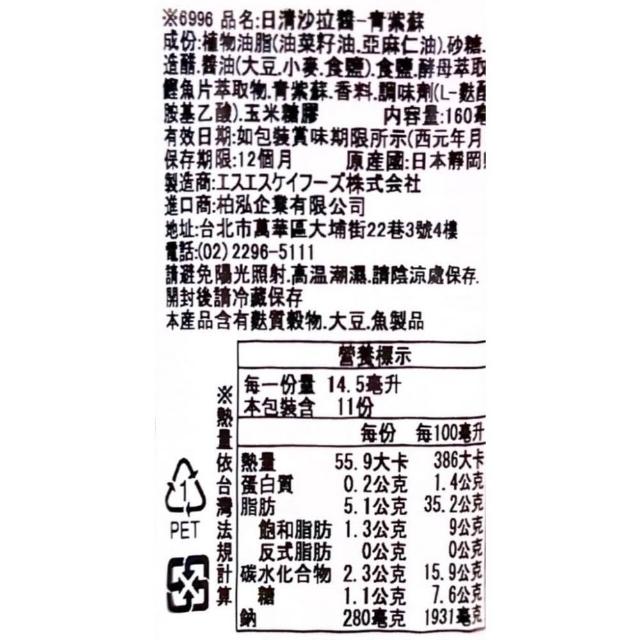 ※6996 品名:日清沙拉醬-青紫蘇
成份:植物油脂(油菜籽油.亞麻仁油).砂糖.
造醋.醬油(大豆.小麥.食鹽).食鹽.酵母萃取
鰹魚片萃取物.青紫蘇.香料.調味劑(L-麩酸
胺基乙酸).玉米糖膠 內容量:160毫
有效日期:如包裝賞味期限所示(西元年月
保存期限:12個月 原產國:日本靜岡縣
製造商:エスエスケイフーズ株式会社
進口商:柏泓企業有限公司
地址:台北市萬華區大埔街22巷3號4樓
電話:(02) 2296-5111
請避免陽光照射.高温潮濕.請陰涼處保存.
開封後請冷藏保存
本產品含有麩質穀物.大豆.魚製品
營養標示
每一份量 14.5毫升
本包裝含 11份
每份 每100毫升
熱量 55.9大卡 386大卡
蛋白質 0.2公克 1.4公克
脂肪 5.1公克 35.2公克
飽和脂肪 1.3公克 9公克
反式脂肪 0公克 0公克
碳水化合物 2.3公克 15.9公克
糖 1.1公克 7.6公克
鈉 280毫克 1931毫克
※熱量依台灣法規計算
1
PET